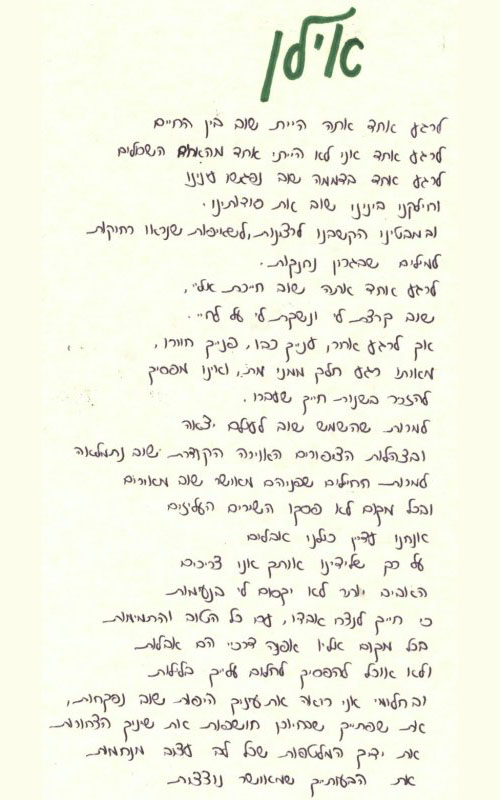 אילן
לרגע אחד אתה היית שוב בין החיים
לרגע אחד אני לא הייתי אחד מהאחים השכולים
לרגע אחד בדממה שוב נפגשו עינינו
וחילקנו בינינו שוב את סודותינו.
ובמבטינו הקשבנו לרצונות, לשאיפות שנראו רחוקות
למילים שבגרון נחנקות.
לרגע אחד אתה שוב חייכת אליי,
שוב קרצת לי ונשקת לי על לחיי.
אך לרגע אחר, עניך כבו, פניך חוורו,
מאותו רגע חלק ממני מת, ואינו מפסיק
להזכר בשנות חייך שעברו.
למרות שהשמש שוב לעולם יצאה
ובצהלות הציפורים האוירה הקודרת שוב נתמלאה
למרות החיילים שפניהם מאושר שוב מאורים
ובכל מקום לא פסקו השירים העליזים
אנחנו עדיין כולנו אבלים
על כך שלידינו אותך אנו צריכים
האביב יותר לא יקסום לי בנעימות
כי חייך לנצח אבדו, עם כל הטוב והתמימות.
בכל מקום אליו אפנה דרכיי הם אבלות
ולא אוכל להפסיק לחלום עלייך בלילות
ובחלומי אני רואה את עיניך היפות שוב נפקחות,
את שפתייך שבחיוכן חושפות את שיניך הצחורות
את ידיך המלטפות שכל לב עצוב מנחמות
את הבעותייך שמאושר נוצצות